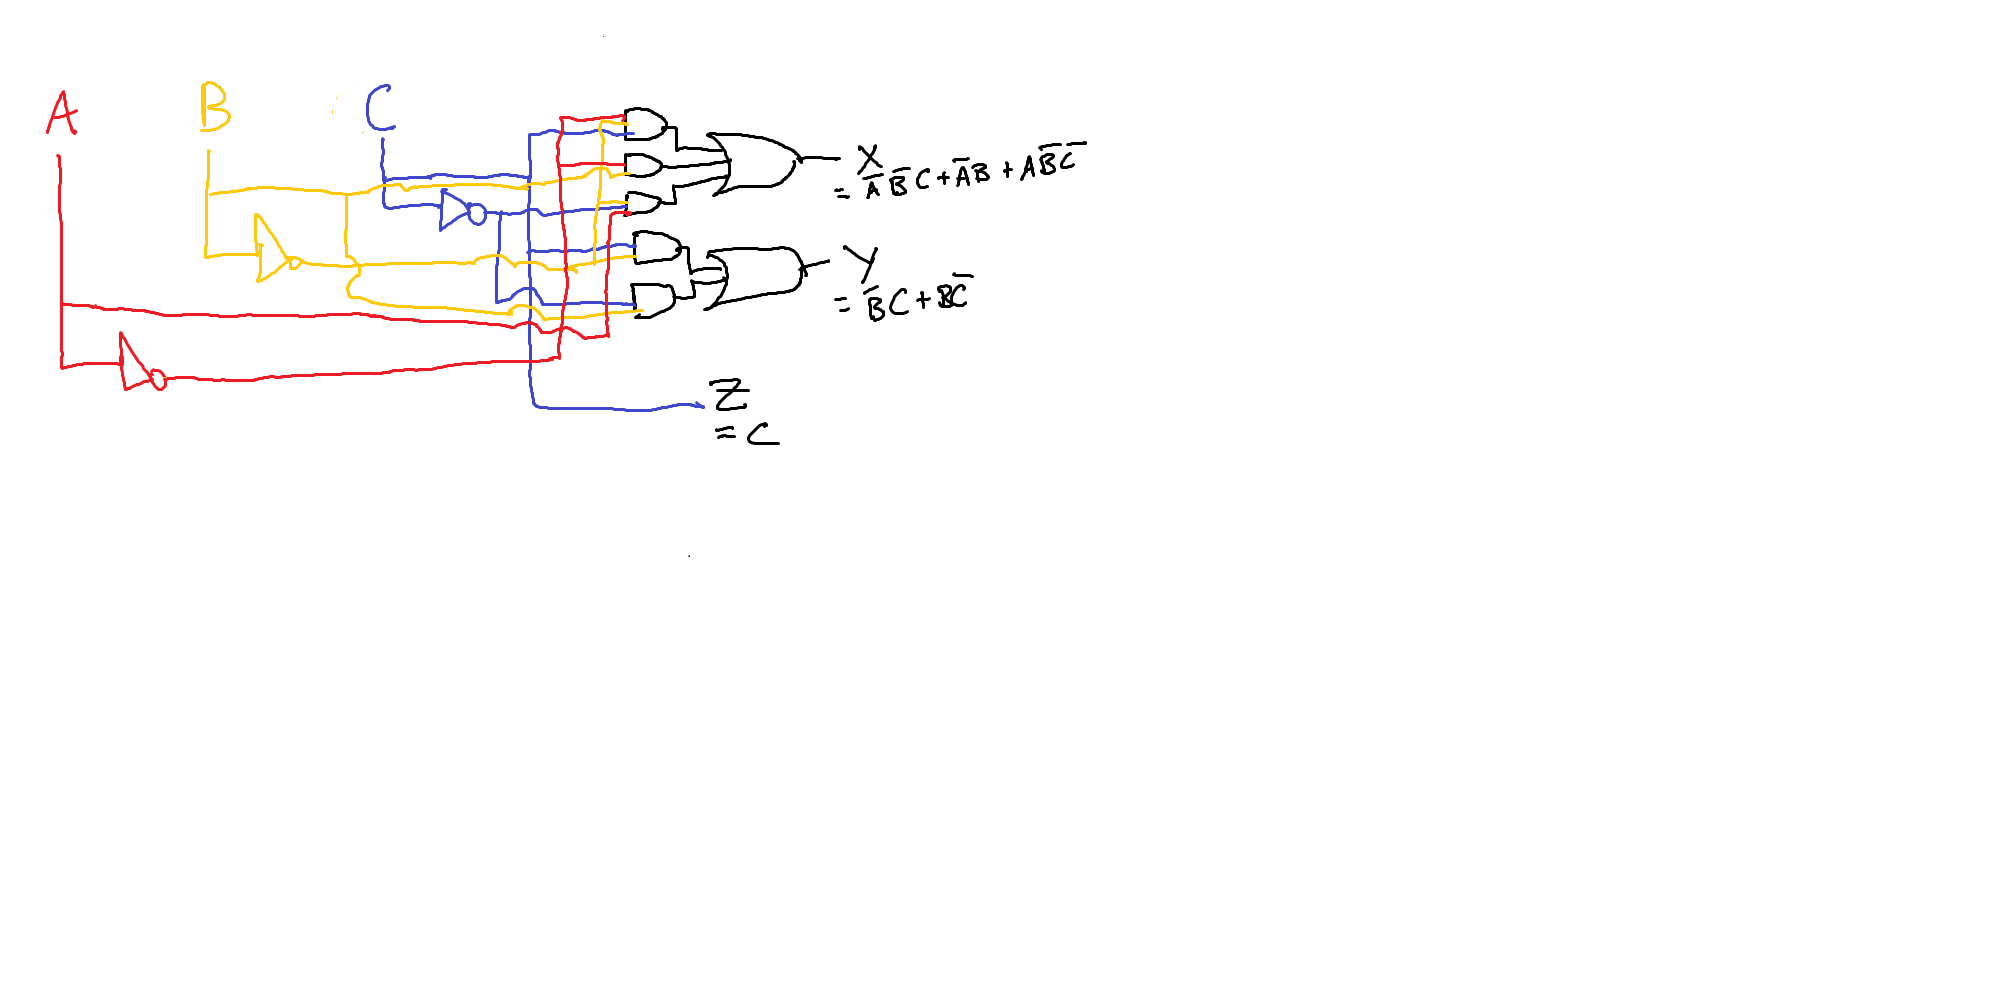 A B C
X
= A̅ B̅ C + A̅ B + A B̅ C̅
Y
= B̅ C + B C̅
Z
= C